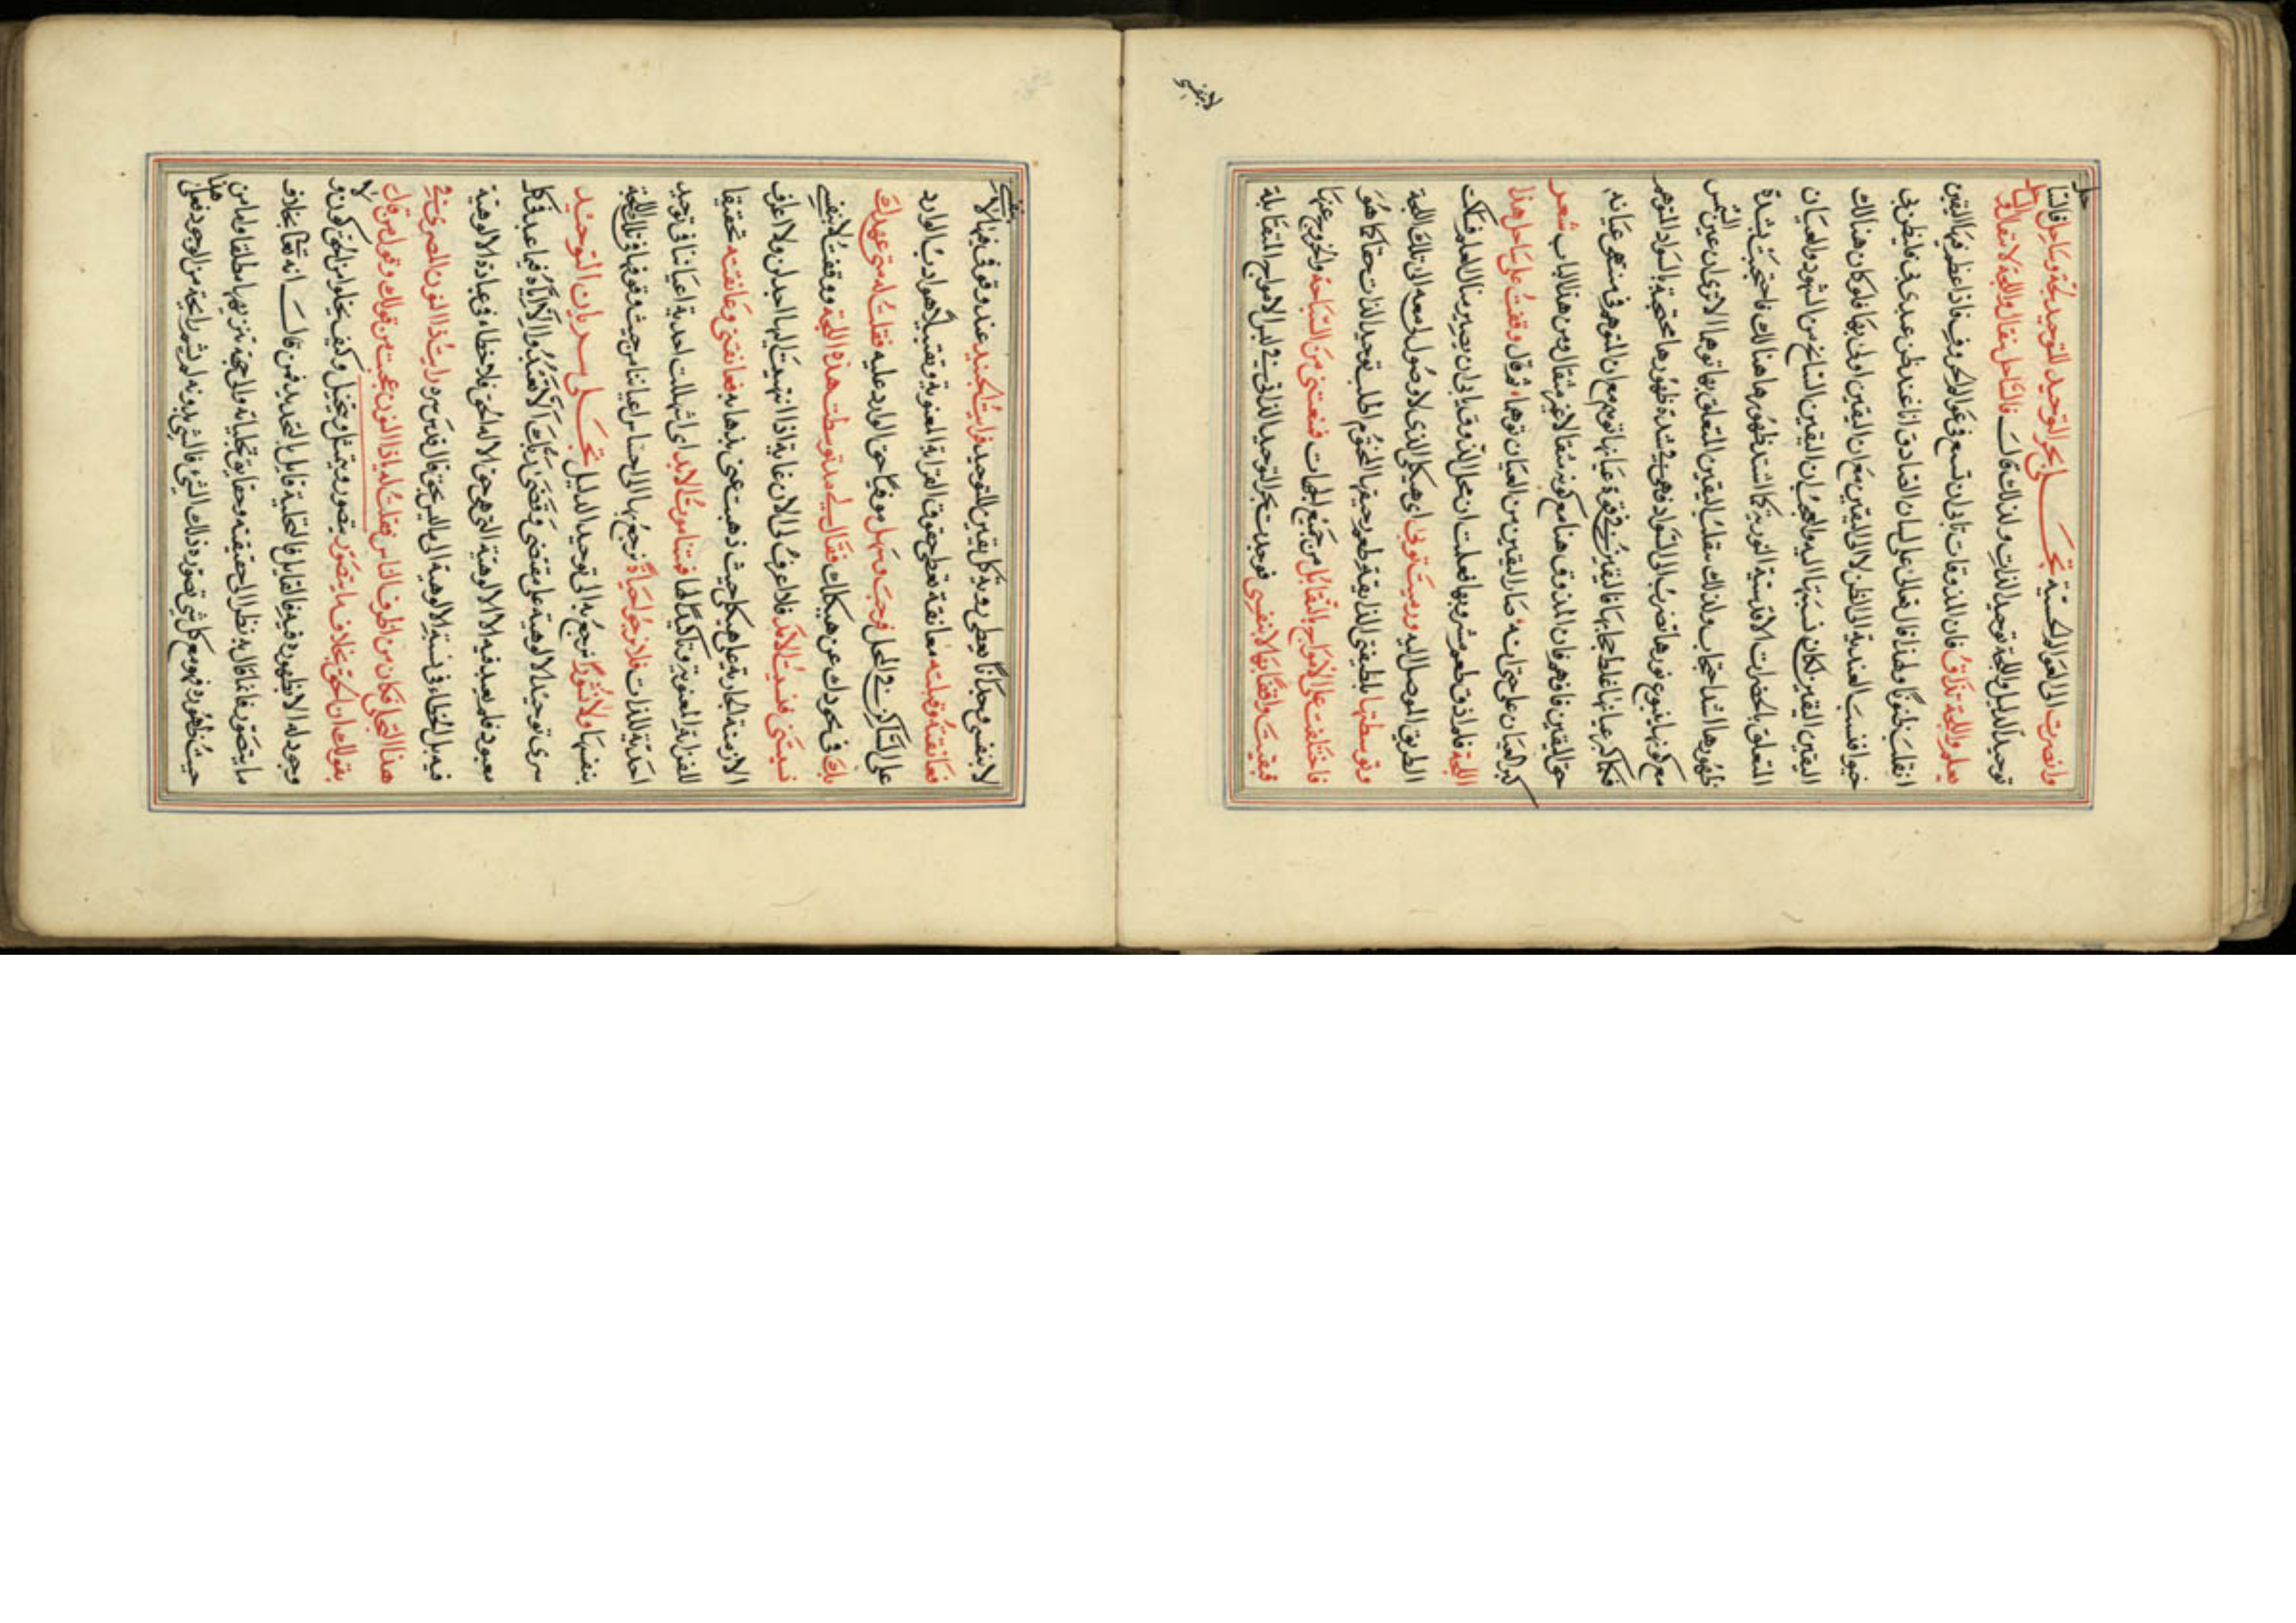 وانصرت الى العوالم الحسية تجلى بحر التوحيد التوحيد لجة وساحل فالسا
حل
توحيد الدليل واللجة توحيد الذات ولذلك قال فالساحل ينقال واللجة لا تنقال والسا
حل
يعلم واللجة تذاق فان الذوقات تابى ان تسع فى عوالم الحروف فاذا عظم فيها اليقين
انقلب ظنونا ولهذا قال تعالى على لسان الصادق انا عند ظن عبدى بى فليظن بى
خيرا فنسب العندية الى الظن لا الى اليقين مع ان اليقين اولى بها فلو كان هنالك
اليقين اليقين لكان نسبتها اليه والحق ان اليقين الناتج من الشهود والعيان
المتعلق بالحضرات الاقدسية النورية كلما اشتد ظهورها هنالك فاحتجبت بشدة
ظهورها اشد احتجاب ولذلك ينقلب اليقين المتعلق بها توهما الا ترى ان عين الشمس
مع كونها ينبوع نورها تضرب الى السواد فهى بشدة ظهورها محتجبة بالسواد المتوهم
فكلما كبر عيانها غلظ حجابها فاليقين فى قوة عيانها توهم مع ان التوهم فى منتهى عيانه
حق اليقين فافهم فان الذوق هنا مع كونه منقالا غير منقال ومن هذا الباب شعر
كبر العيان على حتى انه صار اليقين من العيان توهما ثم قال وقفت على ساحل هذه
اللجة فلما ذوق طعم مشربها فعلمت ان محل الذوق يابى ان يصير مثال العلم فسكت
الطريق الموصل اليه ورميت ثوبى اى هيكلى الذى لا وصول لى معه الى تلك اللجة
وتوسطتها بلطيفتى الذايقة طعم رحيقها المختوم لطلب توحيد الذات حقا كما هو
فاختلفت على الامواج بالتقابل من جميع الجهات فمنعتنى من السباحة والخروج عنها
فبقيت واقفا بها لا بنفسى فوجدت بحر التوحيد الذاتى فى تلبس الامواج المتقابلة
لا بنفسى
لا بنفسى وجدانا يعطى رؤية كل يقين للتوحيد فرايت الجنيد عند وقوفى فيها لا بنفسى
فعانقته وقبلته معانقة تعطى حقوق القرابة المعنوية وتقبيلا هو ادب الوارد
على الساكن فى المحل فرحب وسهل موفيا حق الوارد عليه فقلت له متى عهدك
بك فى تجردك عن هيكلك فقال لى مذ توسطت هذه اللجة ووقفت لا بنفسى
نسيتنى فنسيت الامد فلا اعرف لى الان غاية اذا انتهيت اليها اجدنى ولا اعرف
الازمنة الجارية على هيكلى حيث ذهبت عنى بذهابه فعانقنى وعانقته تحقيقا
للقرابة المعنوية وتاكيدا لها فمتنا موت الابد اى استهلكت احدية اعياننا فى توحيد
احدية الذات فلا نرجو حياة نرجع بها الى احساس اعياننا من حيث وقوفها فى تلك اللجة
بنفسها ولا نشورا نرجع به الى توحيد الدليل تجلى سريان التوحيد
سرى توحيد الالوهية على مقتضى وقضى ربك الا تعبدوا الا اياه فيما عبد فى كل
معبود فلم يعبد فيه الا الالوهية التى هى حق الاله الحق فلا خطاء فى عبادة الالوهية
فيه بل الخطاء فى نسبة الالوهية الى ما ليس بحق قال قدس سره رايت ذا النون المصرى فى
هذا التجلى فكان من اظرف الناس فقلت له يا ذا النون عجبت من قولك وقول من قال
بقولك ان الحق بخلاف ما يتصور يتصور ويتمثل ويتخيل وكيف يخلو امر من الحق كون ولا
وجود له الا بظهوره فيه فالقايل فالتخلية قايل بالتحديد فمن قال انه تعالى بخلاف
ما يتصور فانما قال به نظرا الى حقيقته وحقايق تجلياته ولا صحة تنزيهها مطلقا واما من
حيث ظهوره فهو مع كل شئ بصورة ذلك الشئ فالشئ بدونه لم يشم رايحة من الوجود فعلى هذا